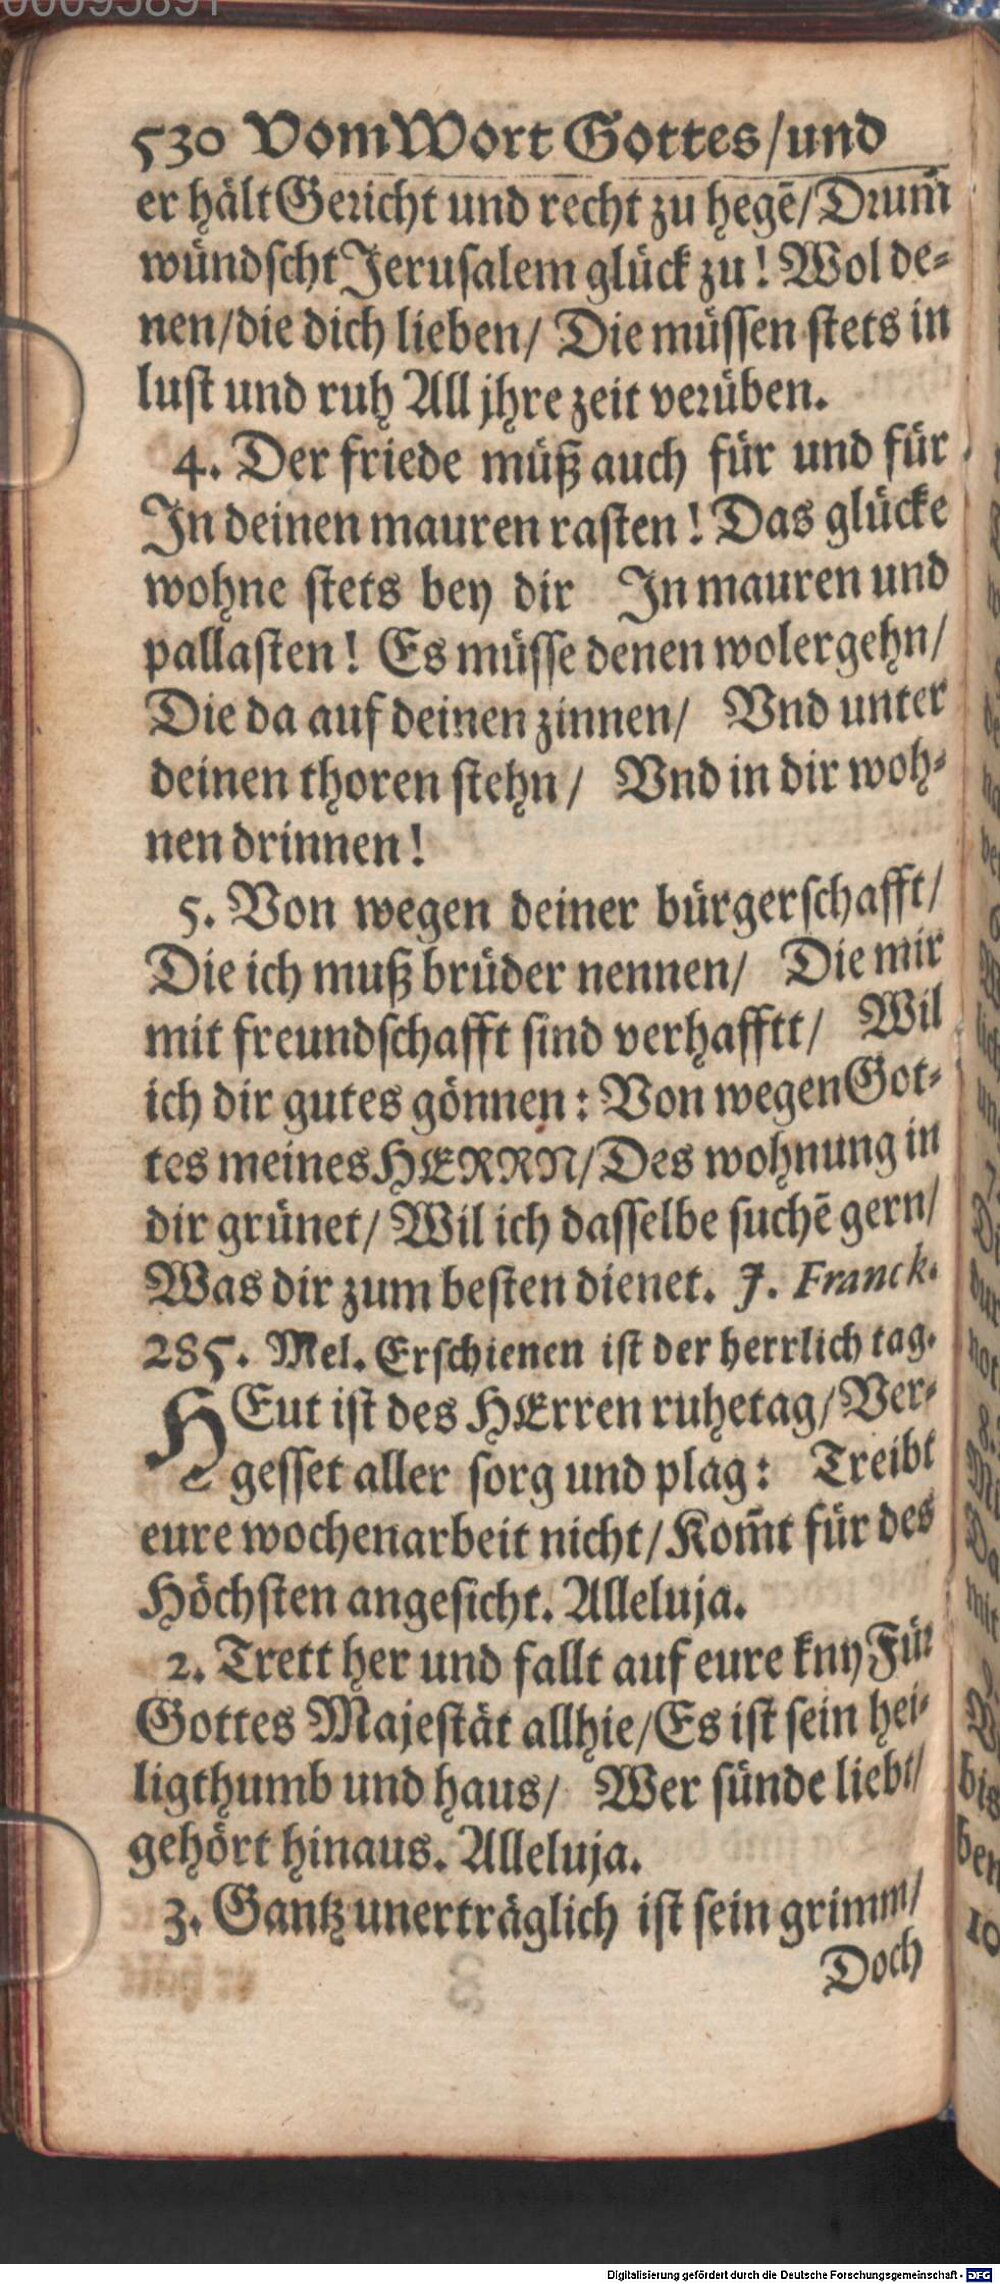 00095891
530 Vom Wort Gottes/und
er hält Gericht und recht zu hegē/Drum̄
wündscht Jerusalem glück zu! Wol de-
nen/die dich lieben/ Die müssen stets in
lust und ruh All jhre zeit verüben.
4. Der friede müß auch für und für
In deinen mauren rasten! Das glücke
wohne stets bey dir In mauren und
pallasten! Es müsse denen wolergehn/
Die da auf deinen zinnen/ Vnd unter
deinen thoren stehn/ Vnd in dir woh-
nen drinnen!
5. Von wegen deiner bürgerschafft/
Die ich muß brüder nennen/ Die mir
mit freundschafft sind verhafftt/ Wil
ich dir gutes gönnen: Von wegen Got-
tes meines HERRN/Des wohnung in
dir grünet/ Wil ich dasselbe suchē gern/
Was dir zum besten dienet. J. Franck.
285. Mel. Erschienen ist der herrlich tag.
HEut ist des HErren ruhetag/Ver-
gesset aller sorg und plag: Treibt
eure wochenarbeit nicht/Kom̄t für des
Höchsten angesicht. Alleluja.
2. Trett her und fallt auf eure kny Für
Gottes Majestät allhie/Es ist sein hei-
ligthumb und haus/ Wer sünde liebt/
gehört hinaus. Alleluja.
3. Gantz unerträglich ist sein grimm/
Doch
Digitalisierung gefördert durch die Deutsche Forschungsgemeinschaft - DFG